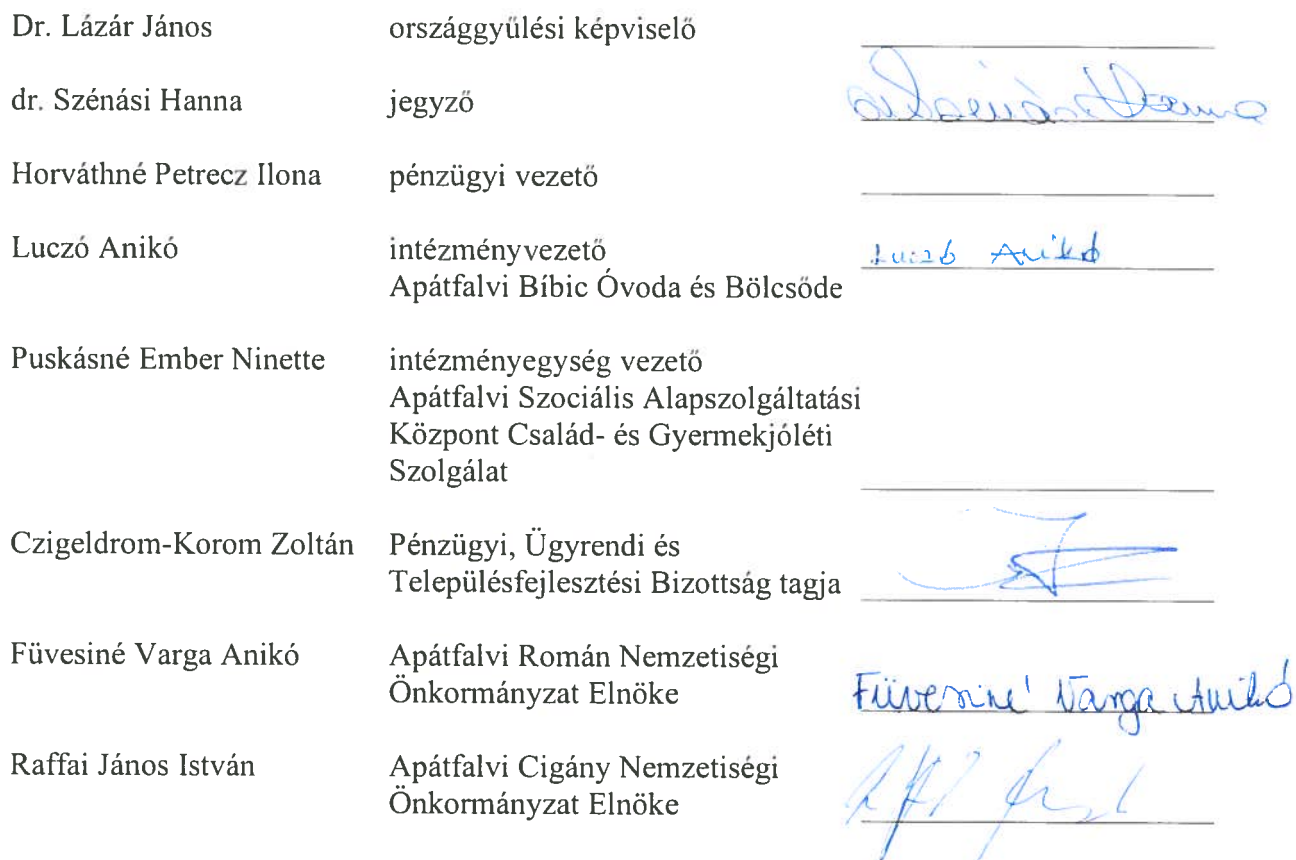 Dr. Lázár János országgyűlési képviselő
dr. Szénási Hanna jegyző dr Szénási Hanna
Horváthné Petrecz Ilona pénzügyi vezető
Luczó Anikó intézményvezető Luczó Anikó
Apátfalvi Bíbic Óvoda és Bölcsőde
Puskásné Ember Ninette intézményegység vezető
Apátfalvi Szociális Alapszolgáltatási
Központ Család- és Gyermekjóléti
Szolgálat
Czigeldrom-Korom Zoltán Pénzügyi, Ügyrendi és
Településfejlesztési Bizottság tagja
Füvesiné Varga Anikó Apátfalvi Román Nemzetiségi
Önkormányzat Elnöke Füvesiné Varga Anikó
Raffai János István Apátfalvi Cigány Nemzetiségi
Önkormányzat Elnöke